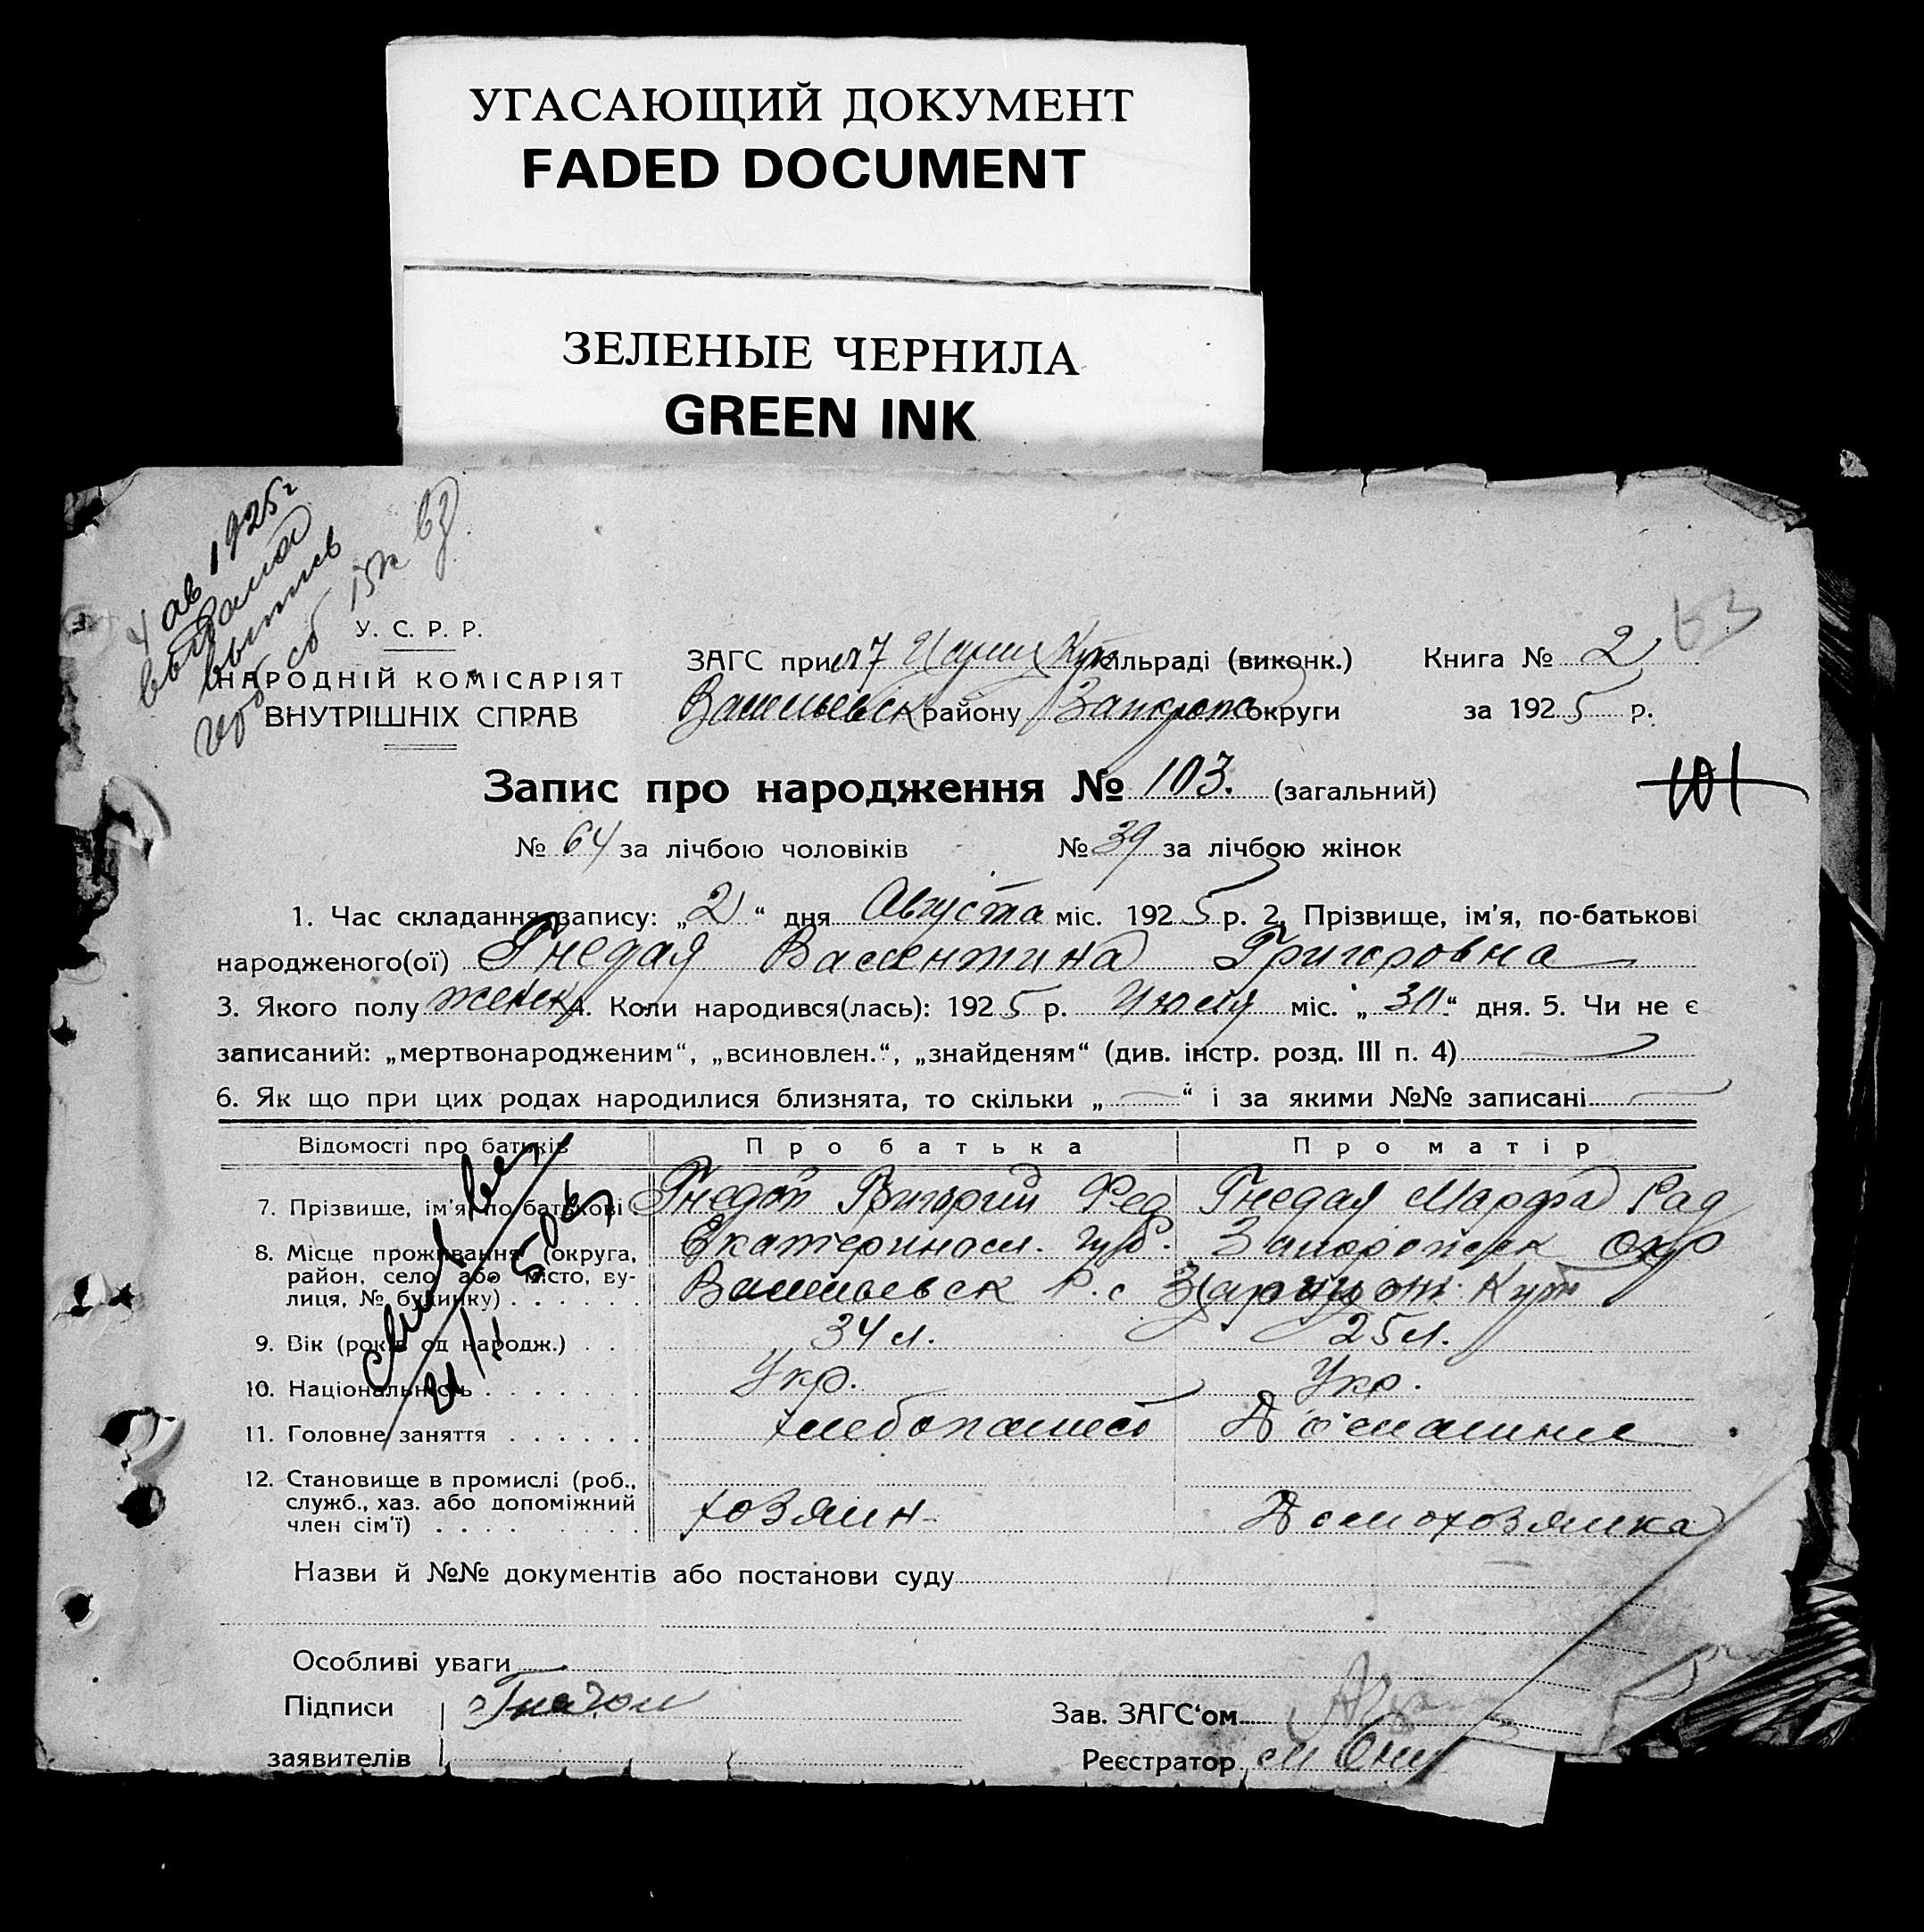 УГАСАЮЩИЙ ДОКУМЕНТ
FADED DOCUMENT
ЗЕЛЕНЫЕ ЧЕРНИЛА
GREEN INK
4 ав 1925 г
выдана
выпись
У. С. Р. Р.
НАРОДНІЙ КОМІСАРІЯТ
ВНУТРІШНІХ СПРАВ
ЗАГС при сільраді (виконк.) Книга № 2
Васильевск району Запорож округи за 1925 р.
Запис про народження № 103. (загальний)
101
№ 64 за лічбою чоловіків № 39 за лічбою жінок
1. Час складання запису: „2“ дня Августа міс. 1925 р. 2. Прізвище, ім'я, по-батькові
народженого(ої) Гнедая Валентина Григоровна
3. Якого полу женск 4. Коли народився(лась): 1925 р. Июля міс. „30“ дня. 5. Чи не є
записаний: „мертвонародженим“, „всиновлен.“, „знайденям“ (див. інстр. розд. III п. 4)
6. Як що при цих родах народилися близнята, то скільки „ — “ і за якими №№ записані —
Відомості про батьків Про батька Про матір
7. Прізвище, ім'я, по батькові Гнедой Григорий Фед Гнедая Марфа Рад
8. Місце проживання (округа, Екатериносл. губ. Запорожск Окр
район, село або місто, ву-
лиця, № будинку) Васильевск Р. с Царицын Кут
9. Вік (років од народж.) 34 л. 25 л.
10. Національність Укр. Укр.
11. Головне заняття хлебопашест Домашние
12. Становище в промислі (роб.,
служб., хаз. або допоміжний
член сім'ї) хозяин Домохозяйка
Назви й №№ документів або постанови суду
Особливі уваги
Підписи
Зав. ЗАГС'ом
заявителів
Реєстратор